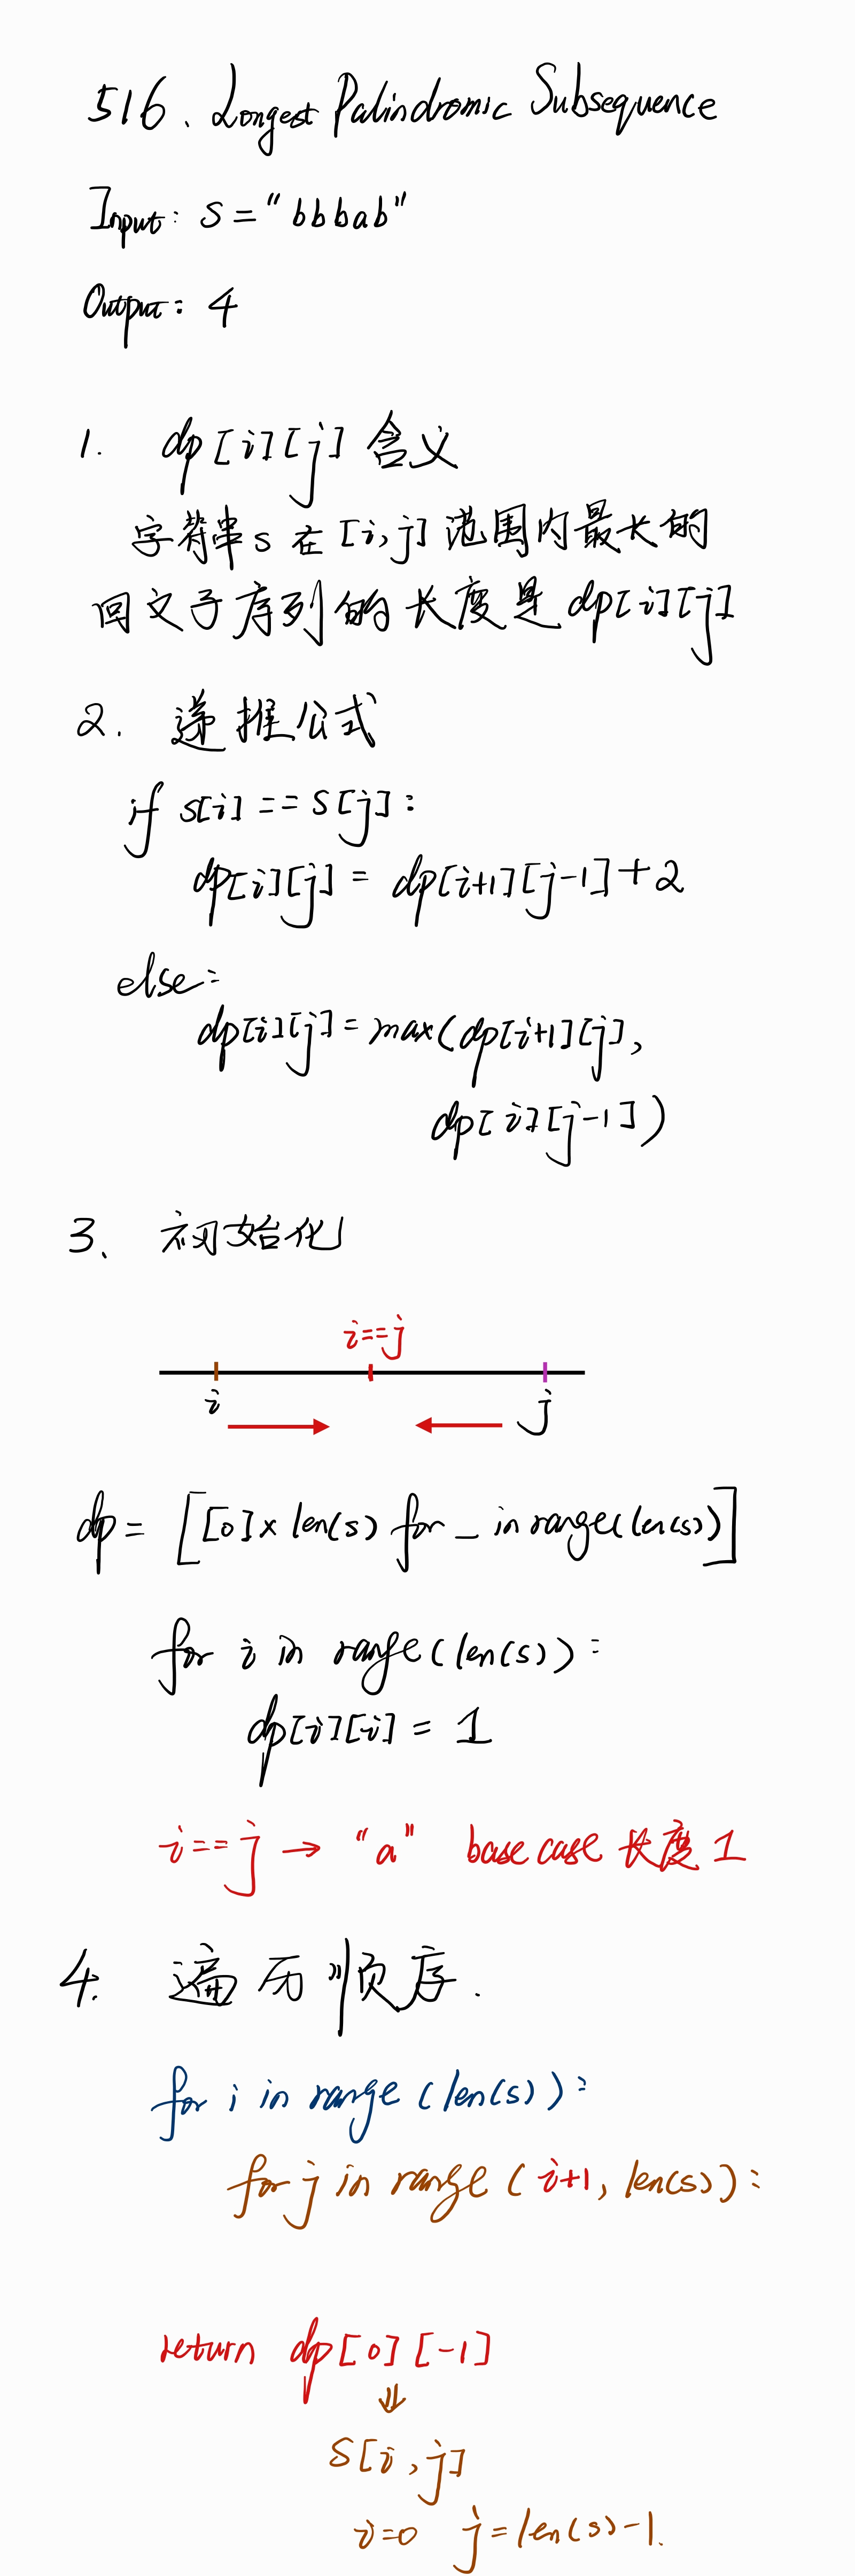 516. Longest Palindromic Subsequence
Input: S = "bbbab"
Output: 4
1. dp[i][j] 含义
字符串s在[i,j]范围内最长的
回文子序列的长度是dp[i][j]
2. 递推公式
if s[i] == s[j]:
dp[i][j] = dp[i+1][j-1]+2
else:
dp[i][j] = max(dp[i+1][j],
dp[i][j-1])
3. 初始化
i==j
i j
dp = [[0]×len(s) for _ in range(len(s))]
for i in range(len(s)):
dp[i][i] = 1
i==j → "a" base case 长度1
4. 遍历顺序.
for i in range(len(s)):
for j in range(i+1, len(s)):
return dp[0][-1]
⇓
S[i,j]
i=0 j=len(s)-1.